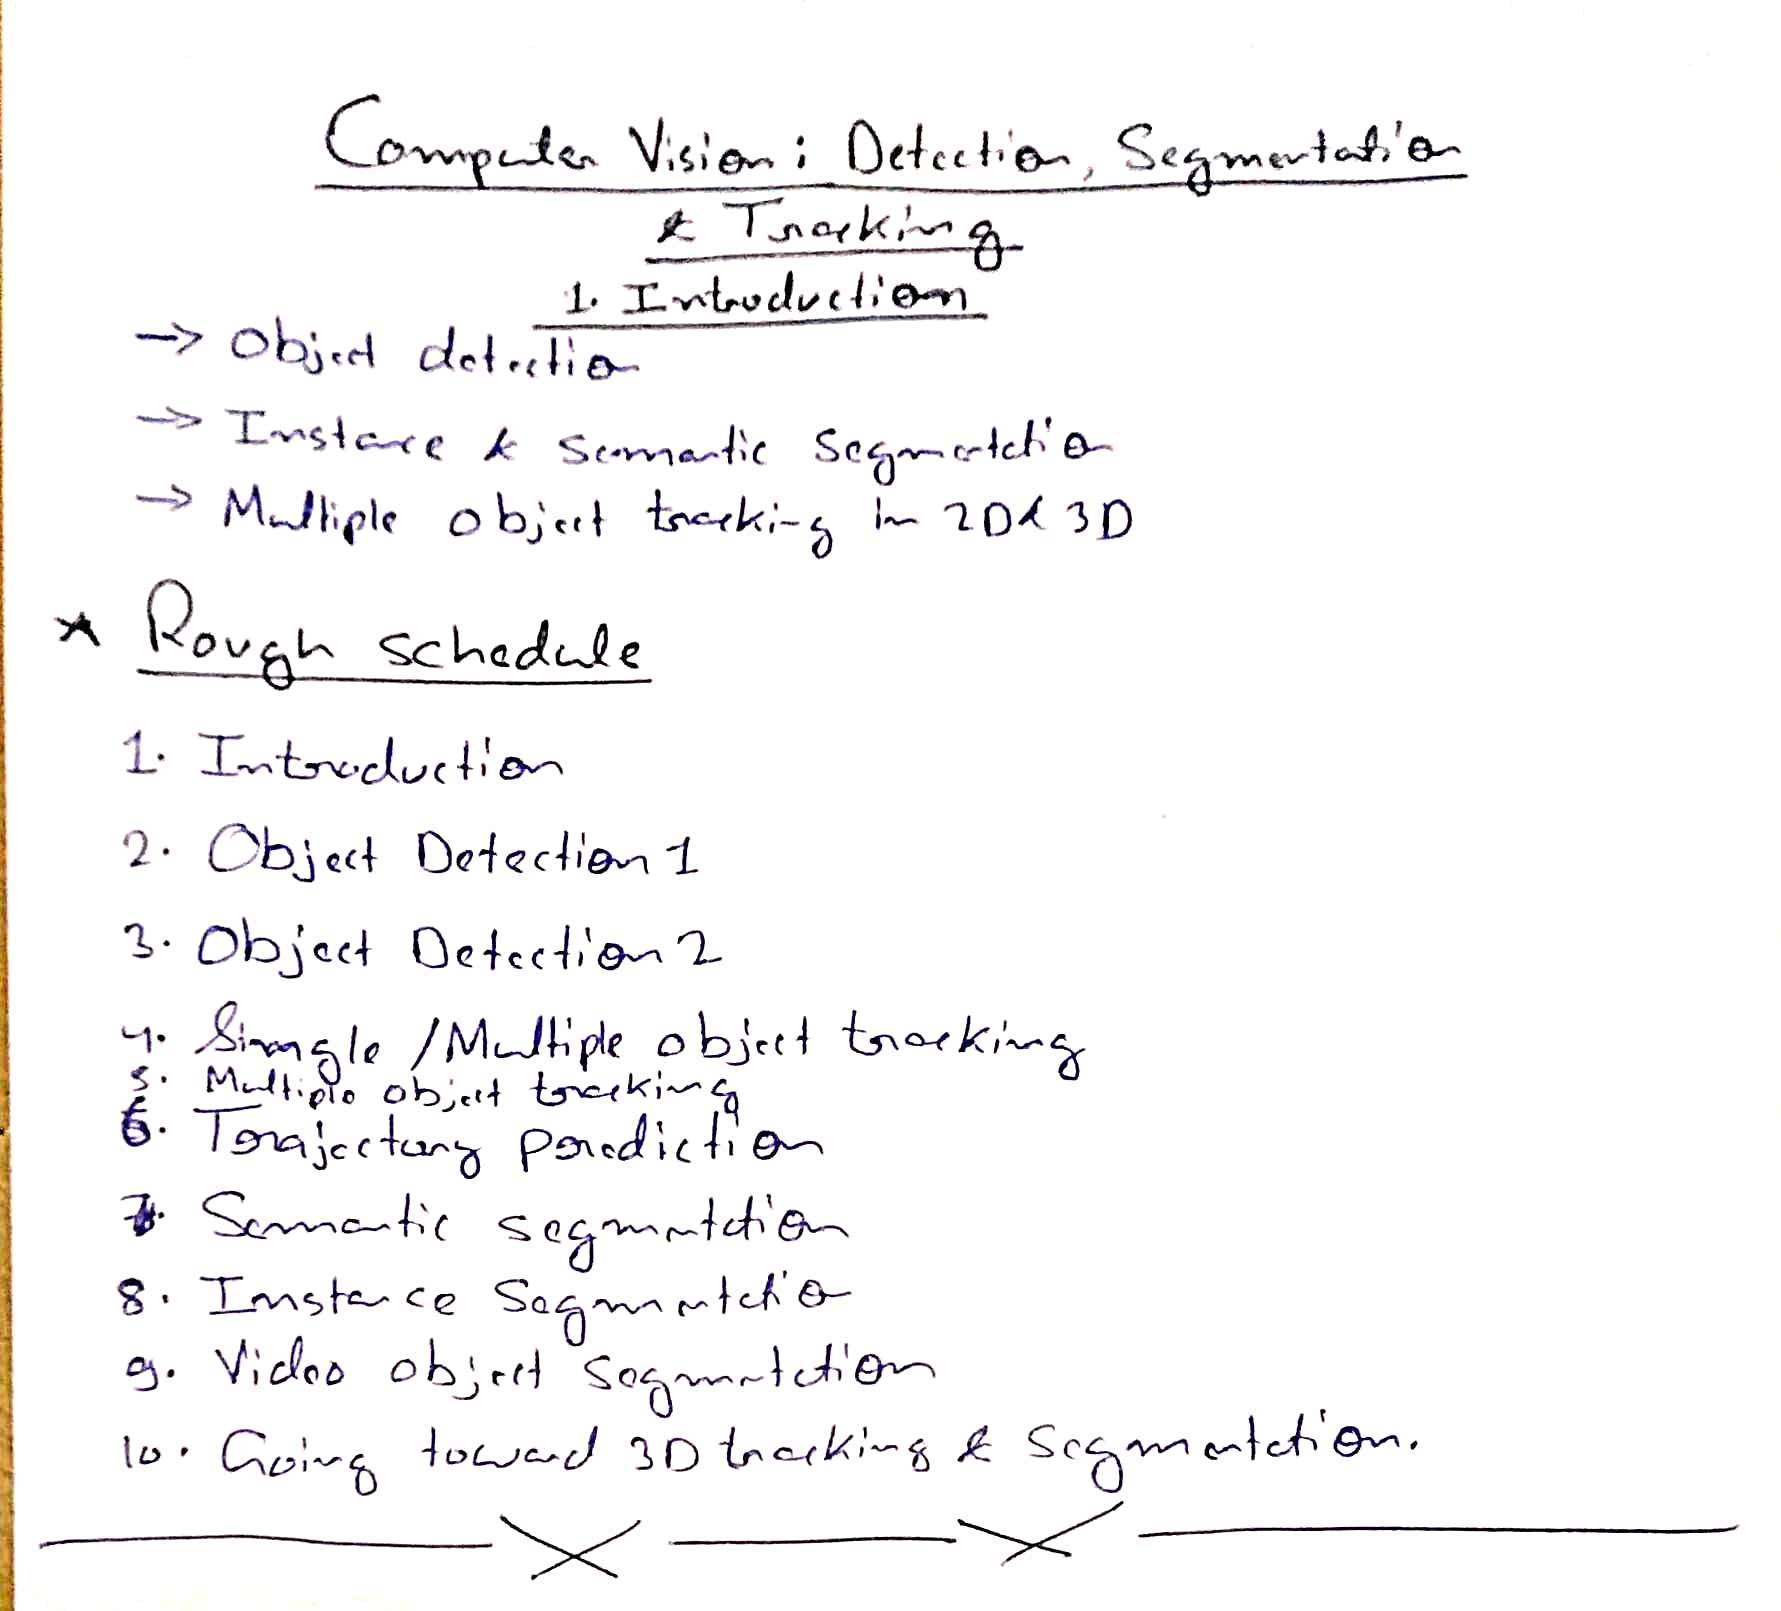 Computer Vision : Detection, Segmentation
& Tracking
1. Introduction
→ Object detection
→ Instance & semantic segmentation
→ Multiple object tracking in 2D & 3D
* Rough schedule
1. Introduction
2. Object Detection 1
3. Object Detection 2
4. Single / Multiple object tracking
5. Multiple object tracking
6. Trajectory prediction
7. Semantic segmentation
8. Instance Segmentation
9. Video object segmentation
10. Going toward 3D tracking & segmentation.